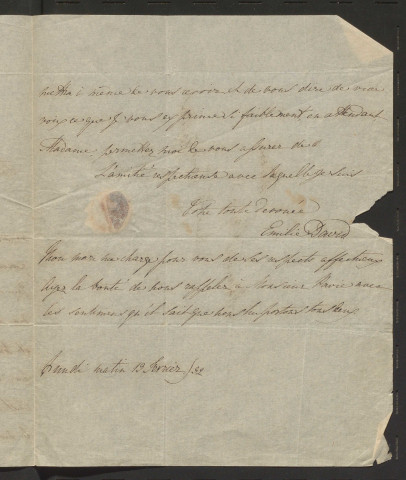 même de vous revoir et de vous dire de vive
voix ce que je vous exprime si faiblement en attendant
Madame permettez moi de vous assurer de
L'amitié respectueuse avec laquelle je suis
Votre toute dévouée
Emilie David
Mon mari me charge pour vous de ses respects affectueux
ayez la bonté de nous rappeler à Monsieur avec
les sentimens qu'il sait que nous lui portons tous deux
matin 13 février /32